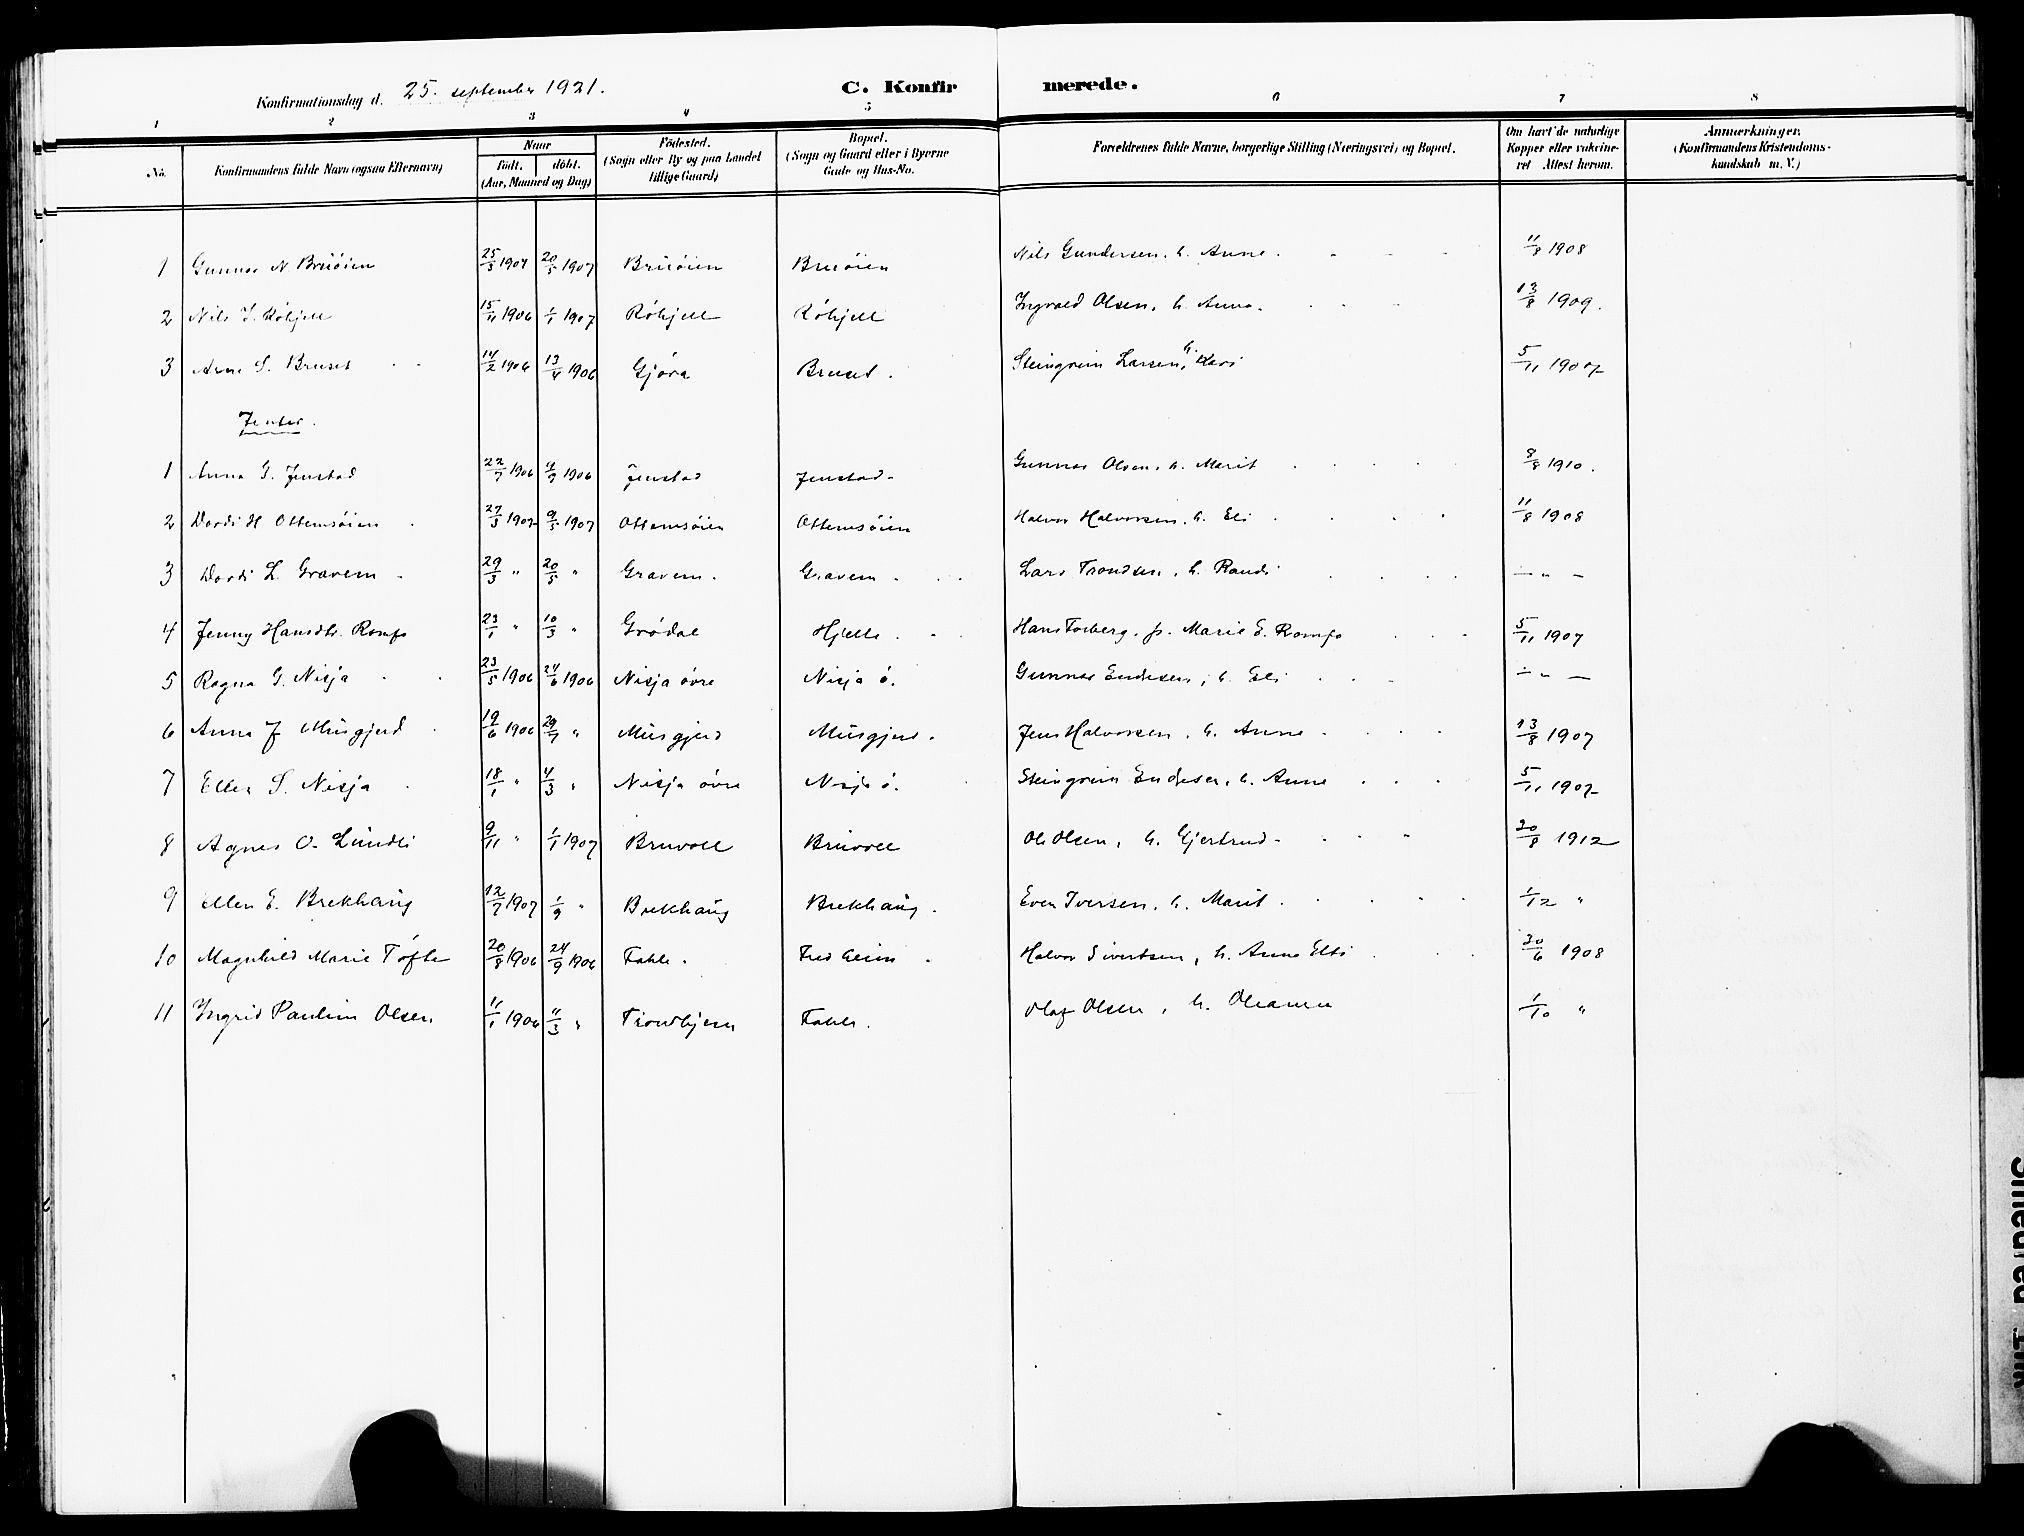 Konfirmationsdag d. 25. september 1921. C. Konfirmerede.
1 2 3 4 5 6 7 8
No. Konfirmandens fulde Navn (ogsaa Efternavn) Naar født. døbt. (Aar, Maaned og Dag) Fødested. (Sogn eller By og paa Landet tillige Gaard) Bopæl. (Sogn og Gaard eller i Byerne Gade og Hus-No. Forældrenes fulde Navne, borgerlige Stilling (Næringsvei) og Bopæl. Om havt de naturlige Kopper eller vakcineret Attest herom. Anmærkninger. (Konfirmandens Kristendomskundskab m. V.)
1 Gunnar N. Bruøien 25/3 1907 20/5 1907 Bruøien Bruøien Nils Gundersen. h. Anne. 11/8 1908
2 Nils I. Røhjell 15/11 1906 1/1 1907 Røhjell Røhjell Ingvald Olsen, h. Anna. 13/8 1909.
3 Arne S. Bruset 14/2 1906 13/4 1906 Gjøra Bruset. Steingrim Larsen, h. Kari 5/11 1907
Jenter.
1 Anna G. Jenstad 22/7 1906 9/9 1906 Jenstad Jenstad Gunnar Olsen. h. Marit 8/8 1910.
2 Dordi H Ottemsøien 27/3 1907 9/5 1907 Ottemsøien Ottemsøien Halvor Halvorsen. h. Eli 11/8 1908
3 Dordi L. Gravem 29/3 " 20/5 " Gravem. Gravem. Lars Trondsen. h. Randi — " —
4 Jenny Hansdtr. Romfo 23/1 " 10/3 " Grødal Hjelle. Hans Torberg. p. Marie E. Romfo 5/11 1907
5 Ragna G. Nisja 23/5 1906 24/6 1906 Nisja øvre Nisja ø. Gunnar Endresen, h. Eli — " —
6 Anna J Musgjerd 19/6 1906 29/7 " Musgjerd Musgjerd. Jens Halvorsen. h. Anne. 13/8 1907
7 Ellen S. Nisja 18/1 " 4/3 " Nisja øvre Nisja ø. Steingrim Endresen, h. Anne 5/11 1907
8 Agnes O. Lundli 9/11 " 1/1 1907 Bruvoll Bruvoll Ole Olsen, h. Gjertrud 20/8 1912
9 Ellen E. Brekhaug 12/7 1907 1/9 " Brekhaug Brekhaug. Even Iversen. h. Marit. 1/12 "
10 Magnhild Marie Tøfte 20/8 1906 24/9 1906 Fahle. Fredheim Halvor Sivertsen, h. Anne Elti 30/6 1908
11 Ingrid Pauline Olsen 11/1 1906 11/3 " Trondhjem Fahle. Olaf Olsen, h. Oleanna 1/10 "